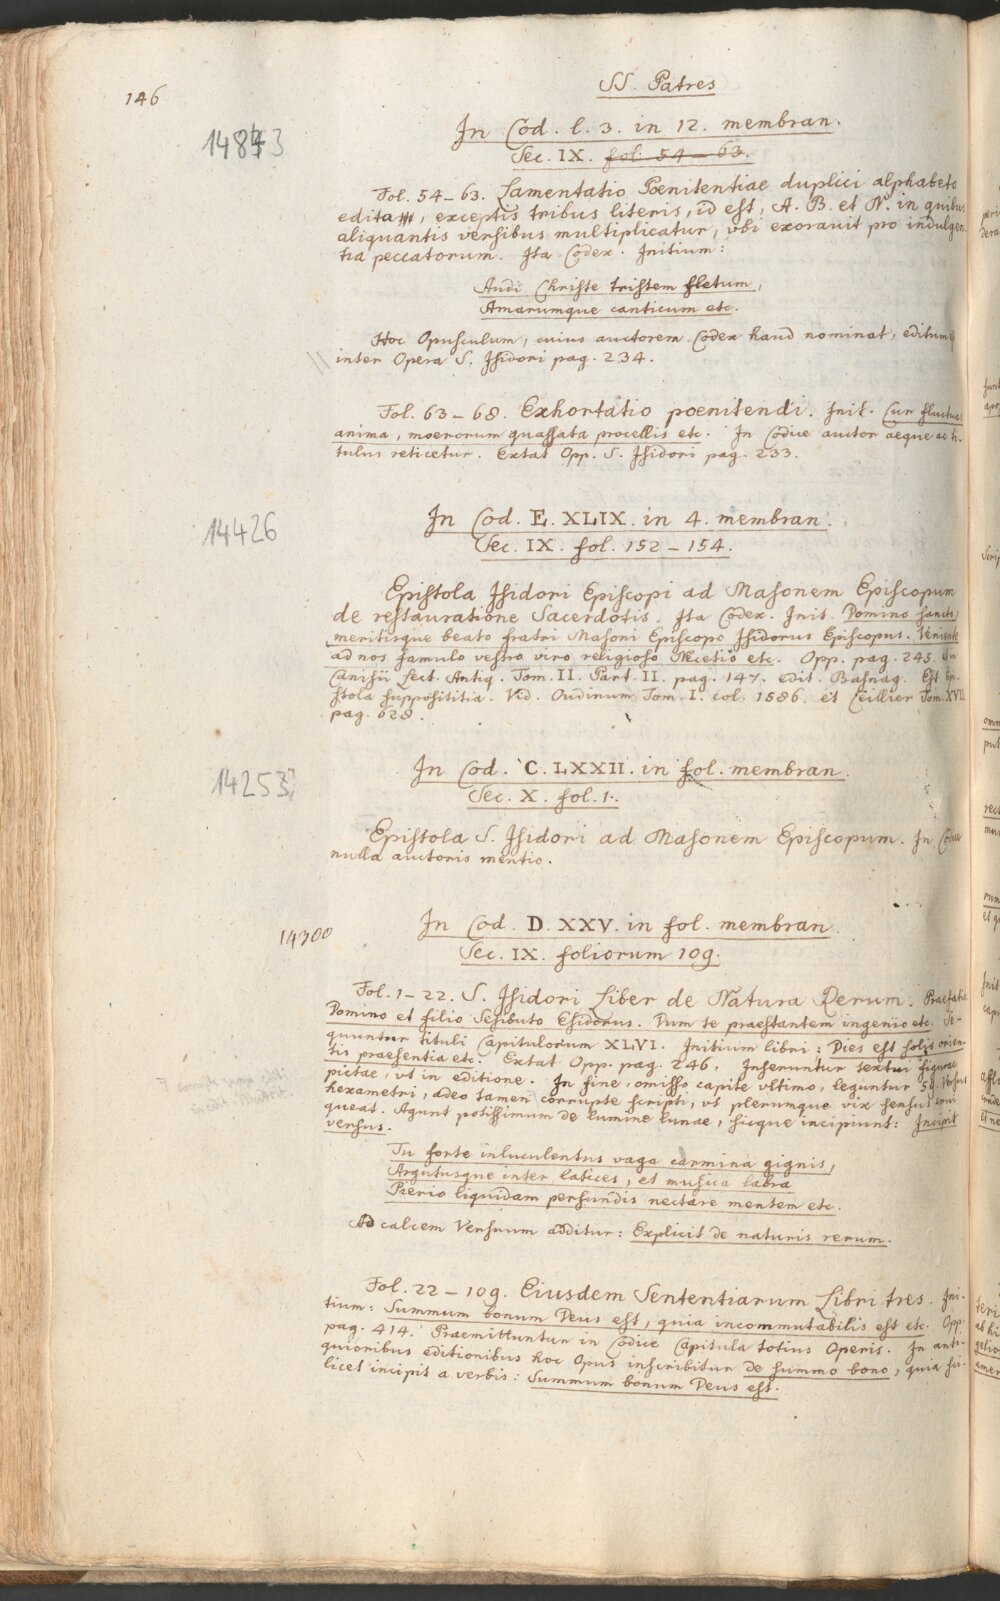 146
SS. Patres
14843
In Cod. l. 3. in 12. membran.
Sec. IX. fol. 54-63.
Fol. 54-63. Lamentatio Poenitentiae duplici alphabeto
edita, exceptis tribus literis, id est, A. B. et N. in quibus
aliquantis versibus multiplicatur, vbi exorauit pro indulgen
tia peccatorum. Ita Codex. Initium:
Audi Christe tristem fletum,
Amarumque canticum etc.
Hoc Opusculum, cuius auctorem Codex haud nominat, editum
inter Opera S. Isidori pag. 234.
Fol. 63-68. Exhortatio poenitendi. Init. Cur fluctuas
anima, moerorum quassata procellis etc. In Codice auctor aeque ac ti-
tulus reticetur. Extat Opp. S. Isidori pag. 233.
14426
In Cod. E. XLIX. in 4. membran.
Sec. IX. fol. 152-154.
Epistola Isidori Episcopi ad Masonem Episcopum
de restauratione Sacerdotis. Ita Codex. Init. Domino sancto,
meritisque beato fratri Masoni Episcopo Isidorus Episcopus. Veniente
ad nos famulo vestro viro religioso Nicetio etc. Opp. pag. 245. In
Canisii Lect. Antiq. Tom. II. Part. II. pag. 147. edit. Basnag. Est Epi-
stola supposititia. Vid. Oudinum Tom. I. col. 1586. et Ceillier Tom. XVII
pag. 628.
14253
In Cod. C. LXXII. in fol. membran.
Sec. X. fol. 1.
Epistola S. Isidori ad Masonem Episcopum. In Codice
nulla auctoris mentio.
14300
In Cod. D. XXV. in fol. membran.
Sec. IX. foliorum 109.
Fol. 1-22. S. Isidori Liber de Natura Rerum. Praefatio
Domino et filio Sesibuto Esidorus. Dum te praestantem ingenio etc. Se-
quuntur tituli Capitulorum XLVI. Initium libri: Dies est solis orien-
tis praesentia etc. Extat Opp. pag. 246. Inseruntur textui figurae
pictae, vt in editione. In fine, omisso capite vltimo, leguntur 59. Versus
hexametri, adeo tamen corrupte scripti, vt plerumque vix sensus erui
queat. Agunt potissimum de lumine lunae, sicque incipiunt: Incipit
versus.
Tu forte inluculentus vaga carmina gignis,
Argutusque inter latices, et musica labra
Pierio liquidam perfundis nectare mentem etc.
Ad calcem Versuum additur: Explicit de naturis rerum.
Fol. 22-109. Eiusdem Sententiarum Libri tres. Ini-
tium: Summum bonum Deus est, quia incommutabilis est etc. Opp.
pag. 414. Praemittuntur in Codice Capitula totius Operis. In anti-
quioribus editionibus hoc Opus inscribitur de summo bono, quia sci-
licet incipit a verbis: Summum bonum Deus est.